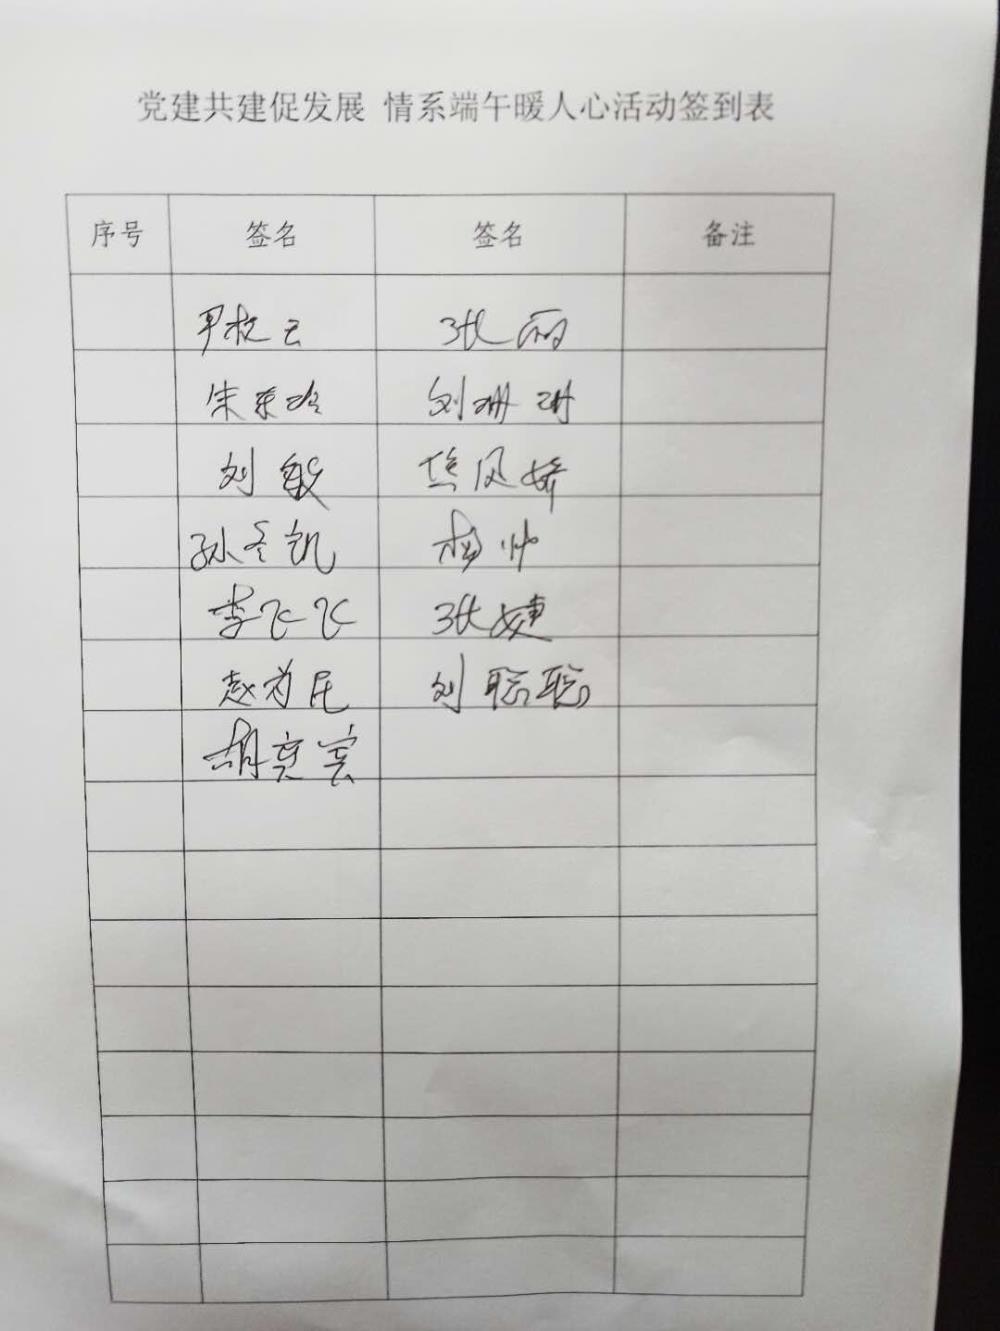 党建共建促发展 情系端午暖人心活动签到表
序号 签名 签名 备注
张丽
朱东玲 刘珊珊
刘敏 凤娇
孙冬凯 杨帅
李飞飞 张婕
赵为民 刘聪聪
胡宾